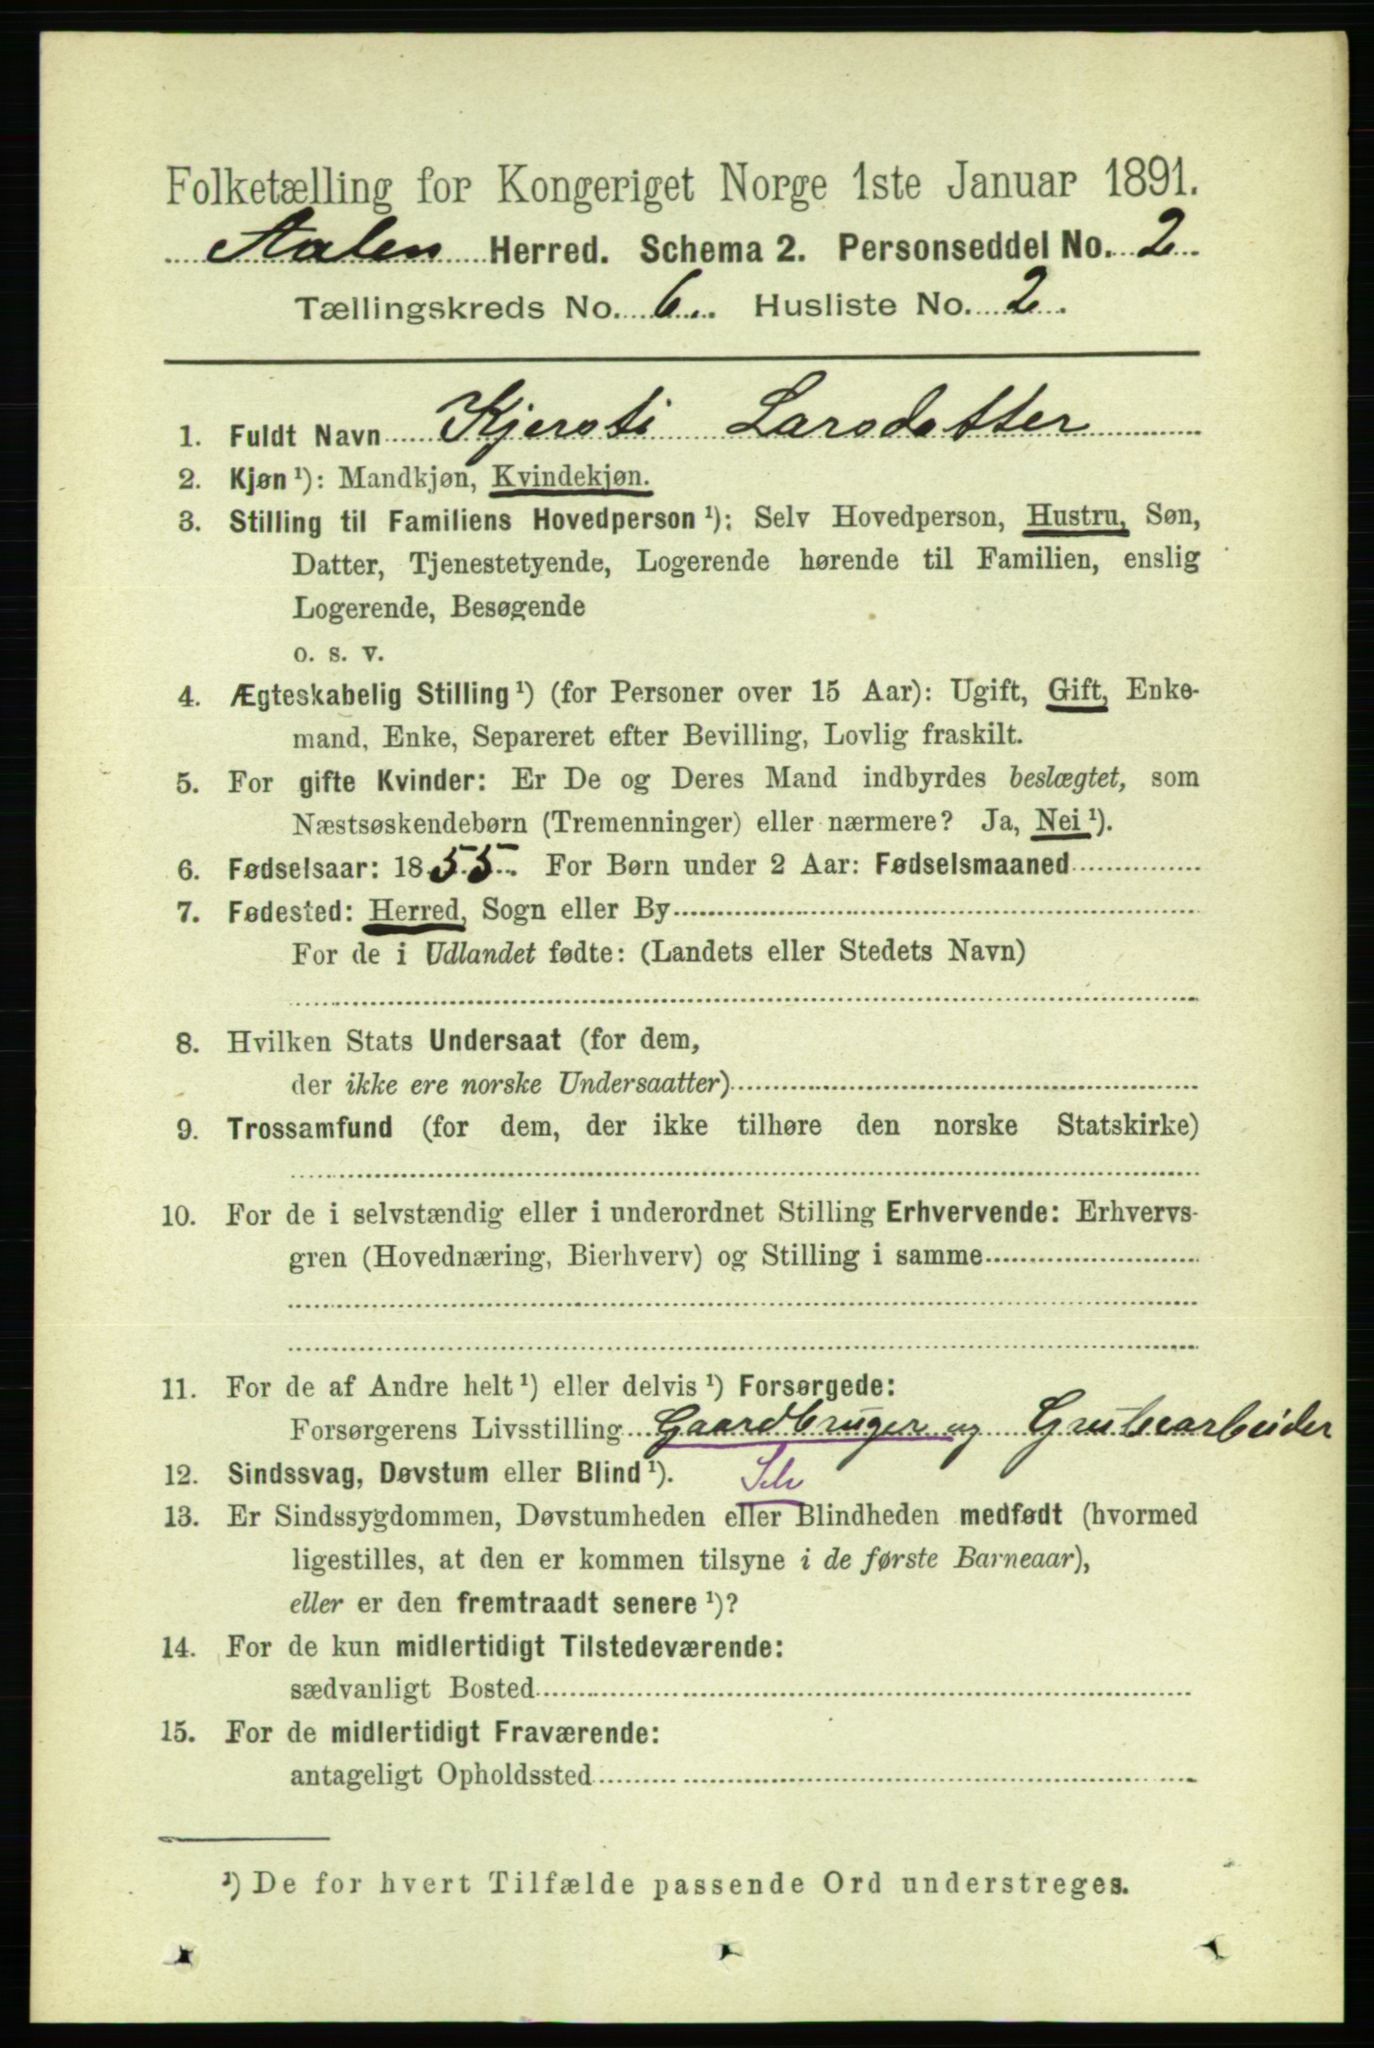 Folketælling for Kongeriget Norge 1ste Januar 1891.
Aalen Herred. Schema 2. Personseddel No. 2
Tællingskreds No. 6 Husliste No. 2
1. Fuldt Navn Kjersti Larsdatter
2. Kjøn ¹): Mandkjøn, Kvindekjøn.
3. Stilling til Familiens Hovedperson ¹): Selv Hovedperson, Hustru, Søn,
Datter, Tjenestetyende, Logerende hørende til Familien, enslig
Logerende, Besøgende
o. s. v.
4. Ægteskabelig Stilling ¹) (for Personer over 15 Aar): Ugift, Gift, Enke-
mand, Enke, Separeret efter Bevilling, Lovlig fraskilt.
5. For gifte Kvinder: Er De og Deres Mand indbyrdes beslægtet, som
Næstsøskendebørn (Tremenninger) eller nærmere? Ja, Nei ¹).
6. Fødselsaar: 1855. For Børn under 2 Aar: Fødselsmaaned
7. Fødested: Herred, Sogn eller By
For de i Udlandet fødte: (Landets eller Stedets Navn)
8. Hvilken Stats Undersaat (for dem,
der ikke ere norske Undersaatter)
9. Trossamfund (for dem, der ikke tilhøre den norske Statskirke)
10. For de i selvstændig eller i underordnet Stilling Erhvervende: Erhvervs-
gren (Hovednæring, Bierhverv) og Stilling i samme
11. For de af Andre helt ¹) eller delvis ¹) Forsørgede:
Forsørgerens Livsstilling Gaardbruger og Grubearbeider
12. Sindssvag, Døvstum eller Blind ¹). Selv
13. Er Sindssygdommen, Døvstumheden eller Blindheden medfødt (hvormed
ligestilles, at den er kommen tilsyne i de første Barneaar),
eller er den fremtraadt senere ¹)?
14. For de kun midlertidigt Tilstedeværende:
sædvanligt Bosted
15. For de midlertidigt Fraværende:
antageligt Opholdssted
¹) De for hvert Tilfælde passende Ord understreges.